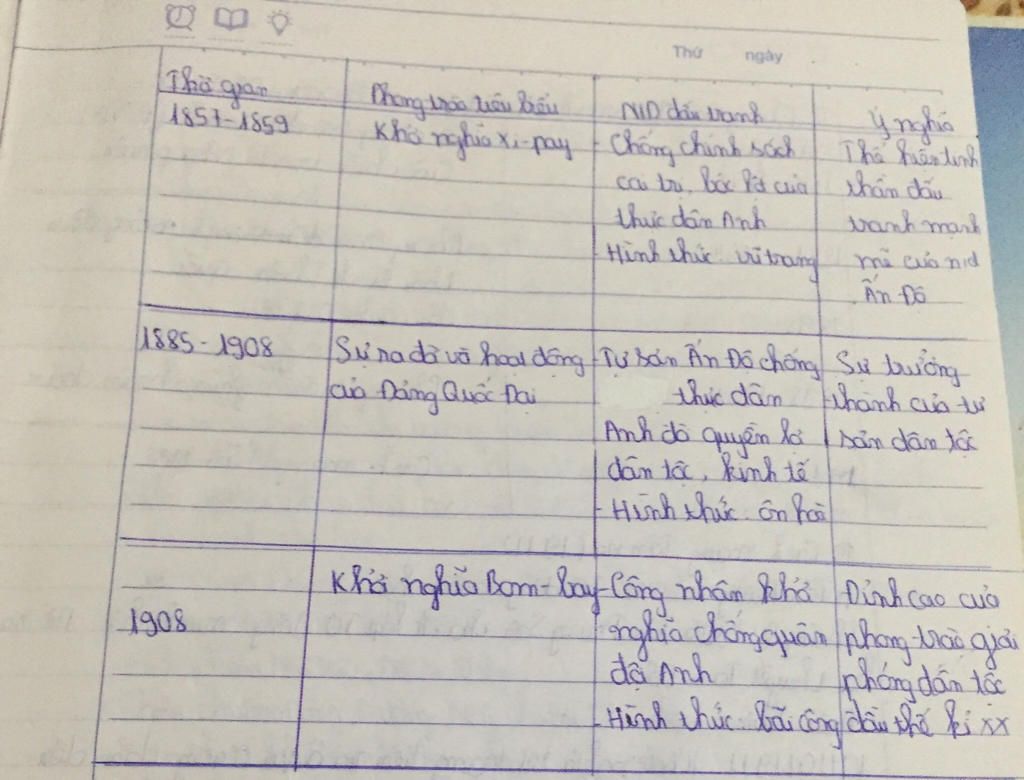 Thứ ngày
Thời gian
Phong trào tiêu biểu
ND đấu tranh
Ý nghĩa
1857-1859
Khởi nghĩa Xi-pay
- Chống chính sách
cai trị, bóc lột của
thực dân Anh
- Hình thức vũ trang
Thể hiện tinh
thần đấu
tranh mạnh
mẽ của nd
Ấn Độ
1885-1908
Sự ra đời và hoạt động
của Đảng Quốc Đại
- Tư sản Ấn Độ chống
thực dân
Anh đòi quyền lợi
dân tộc, kinh tế
- Hình thức ôn hoà
Sự trưởng
thành của tư
sản dân tộc
1908
Khởi nghĩa Bom-bay
- Công nhân khởi
nghĩa chống quân
đội Anh
- Hình thức bãi công
Đỉnh cao của
phong trào giải
phóng dân tộc
đầu thế kỉ XX